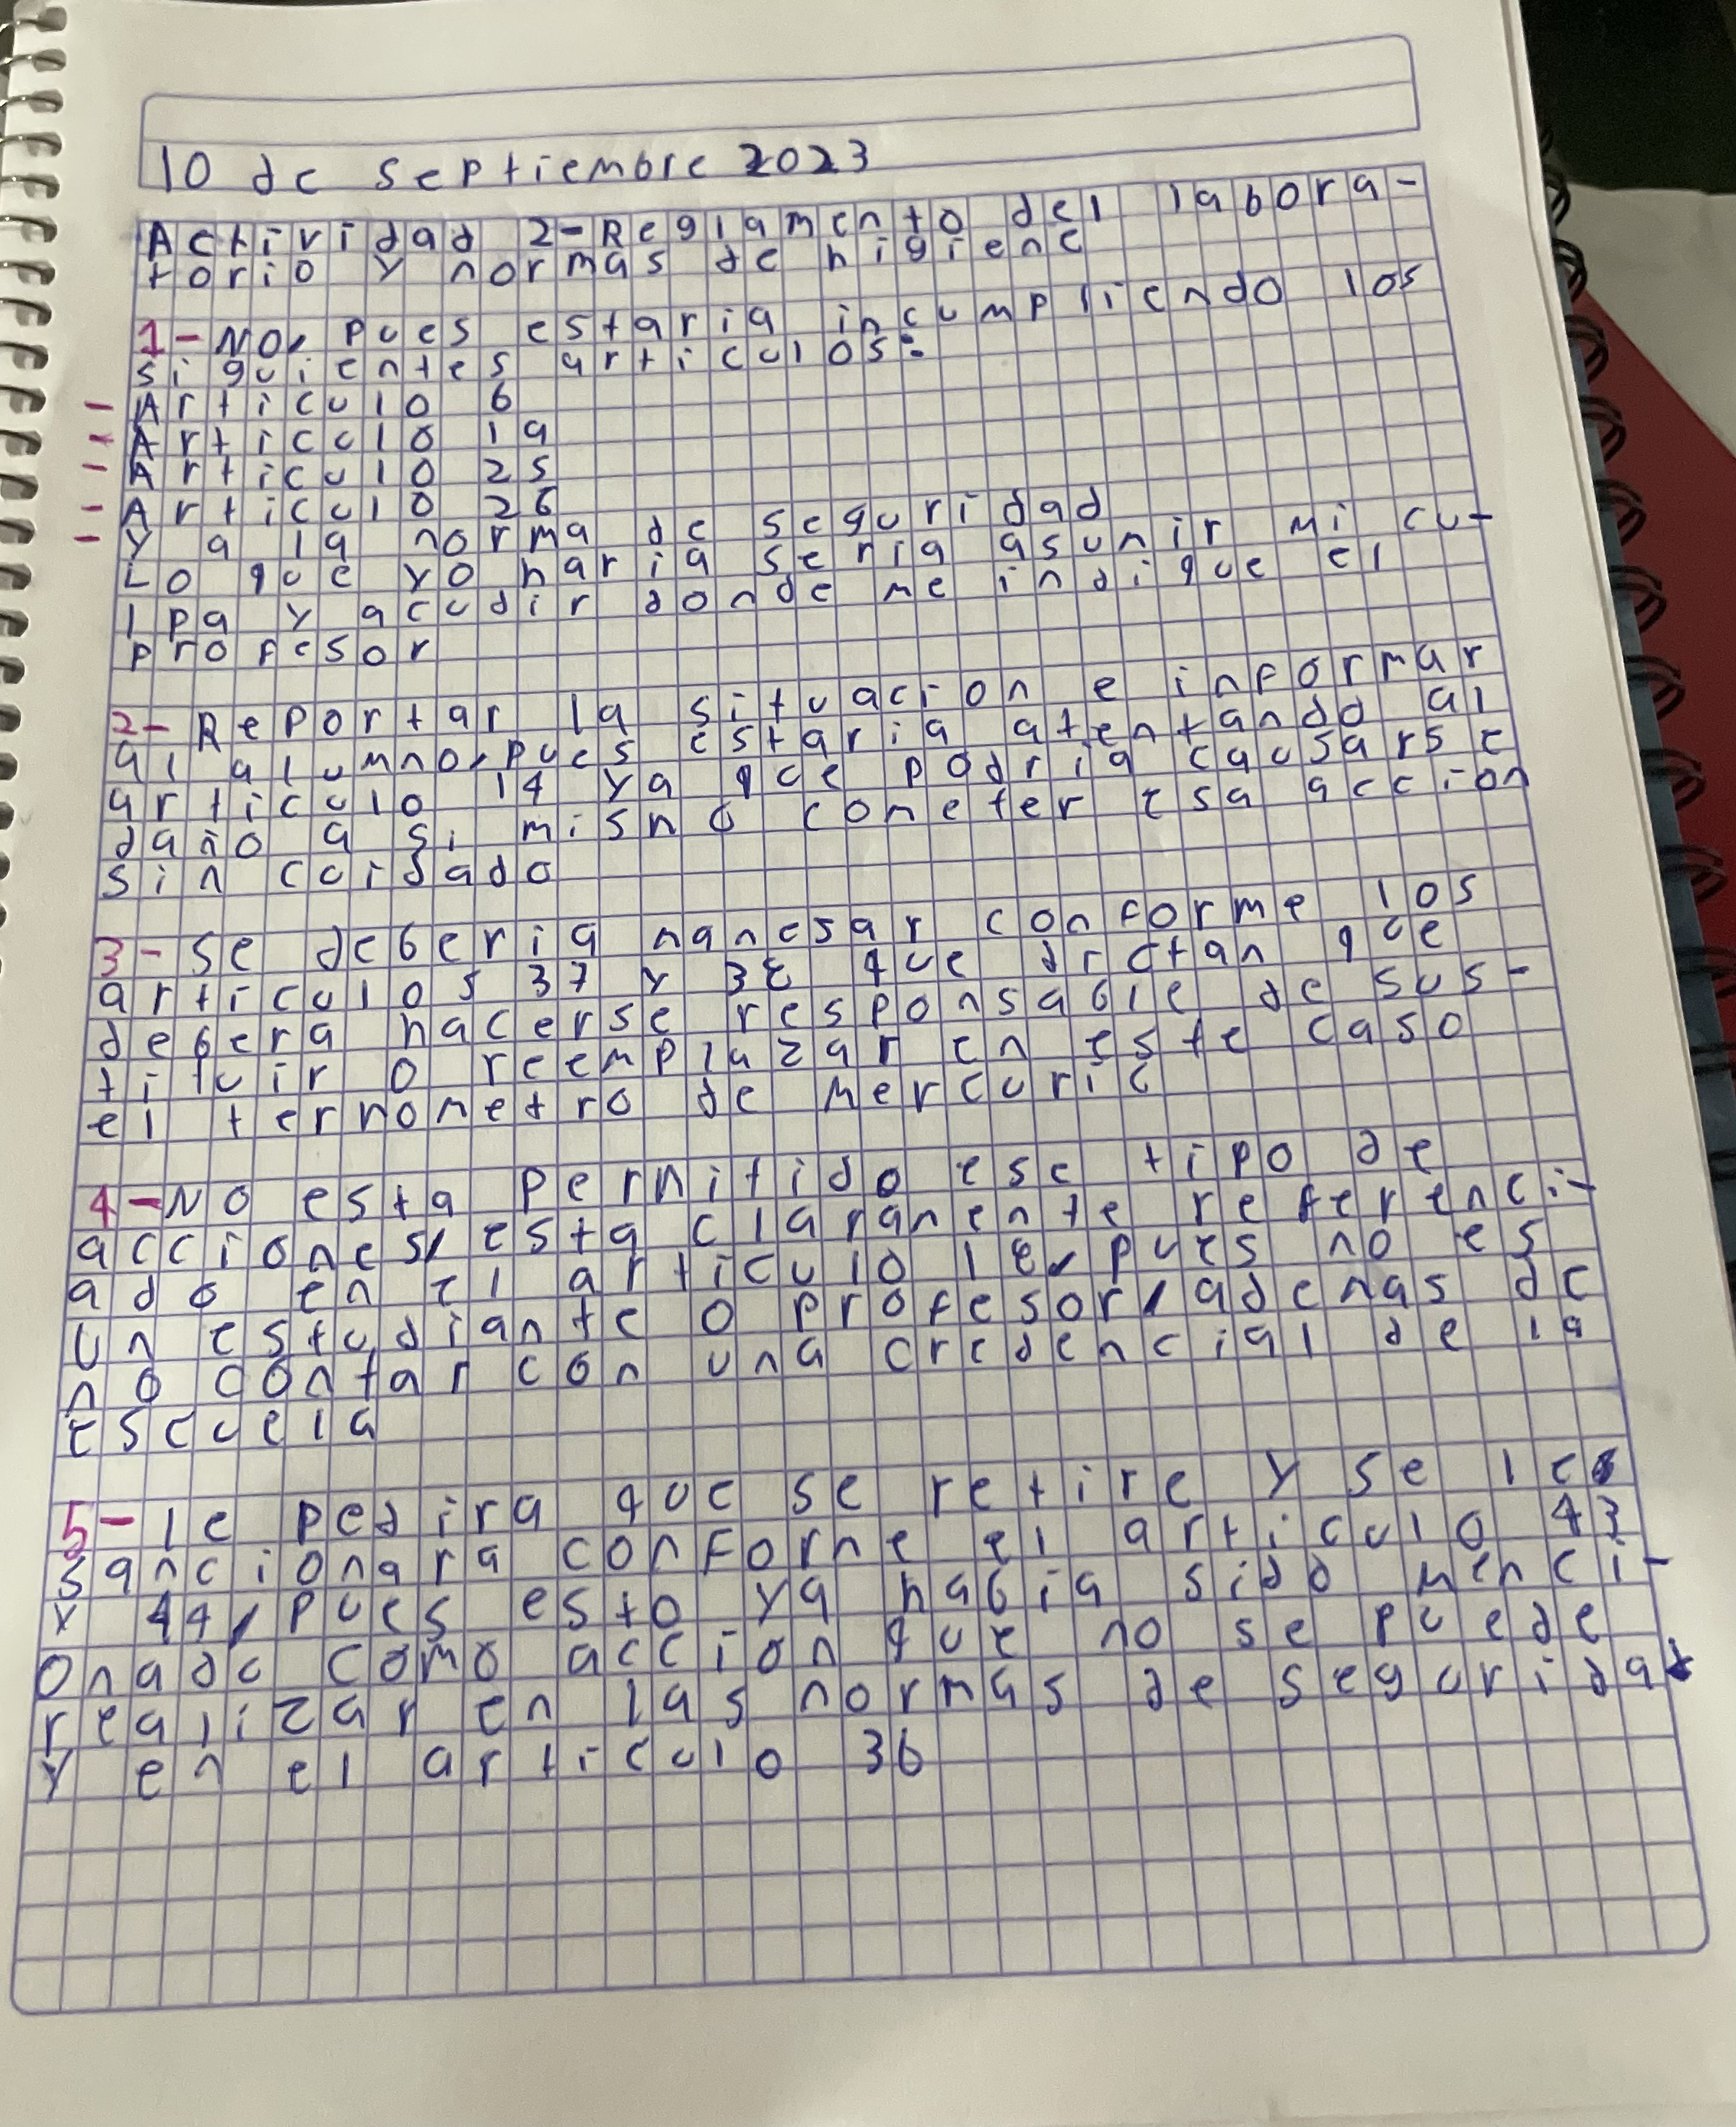 10 de septiembre 2023
Actividad 2-Reglamento del labora-
torio y normas de higiene
1-No, pues estaria incumpliendo los
siguientes articulos:
-Articulo 6
-Articulo 19
-Articulo 25
-Articulo 26
-y a la norma de seguridad
Lo que yo haria seria asumir mi cu-
lpa y acudir donde me indique el
profesor
2-Reportar la situacion e informar
al alumno, pues estaria atentando al
articulo 14 ya que podria causarse
daño a si mismo cometer esa accion
sin cuidado
3-se deberia manejar conforme los
articulos 37 y 38 que dictan que
debera hacerse responsable de sus-
tituir o reemplazar en este caso
el termometro de mercurio
4-No esta permitido ese tipo de
acciones, esta claramente referenci-
ado en el articulo 18, pues no es
un estudiante o profesor, ademas de
no contar con una credencial de la
escuela
5-le pedira que se retire y se le
sancionara conforme el articulo 43
y 44, pues esto ya habia sido menci-
onado como accion que no se puede
realizar en las normas de seguridad
y en el articulo 36